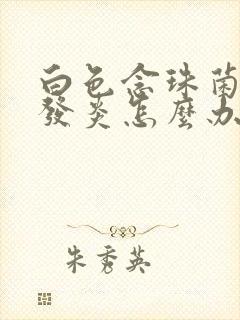 白色念珠菌
發炎怎麼办
朱秀英